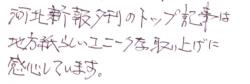 河北新報夕刊のトップ記事は
地方紙らしいユニークな取り上げに
感心しています。